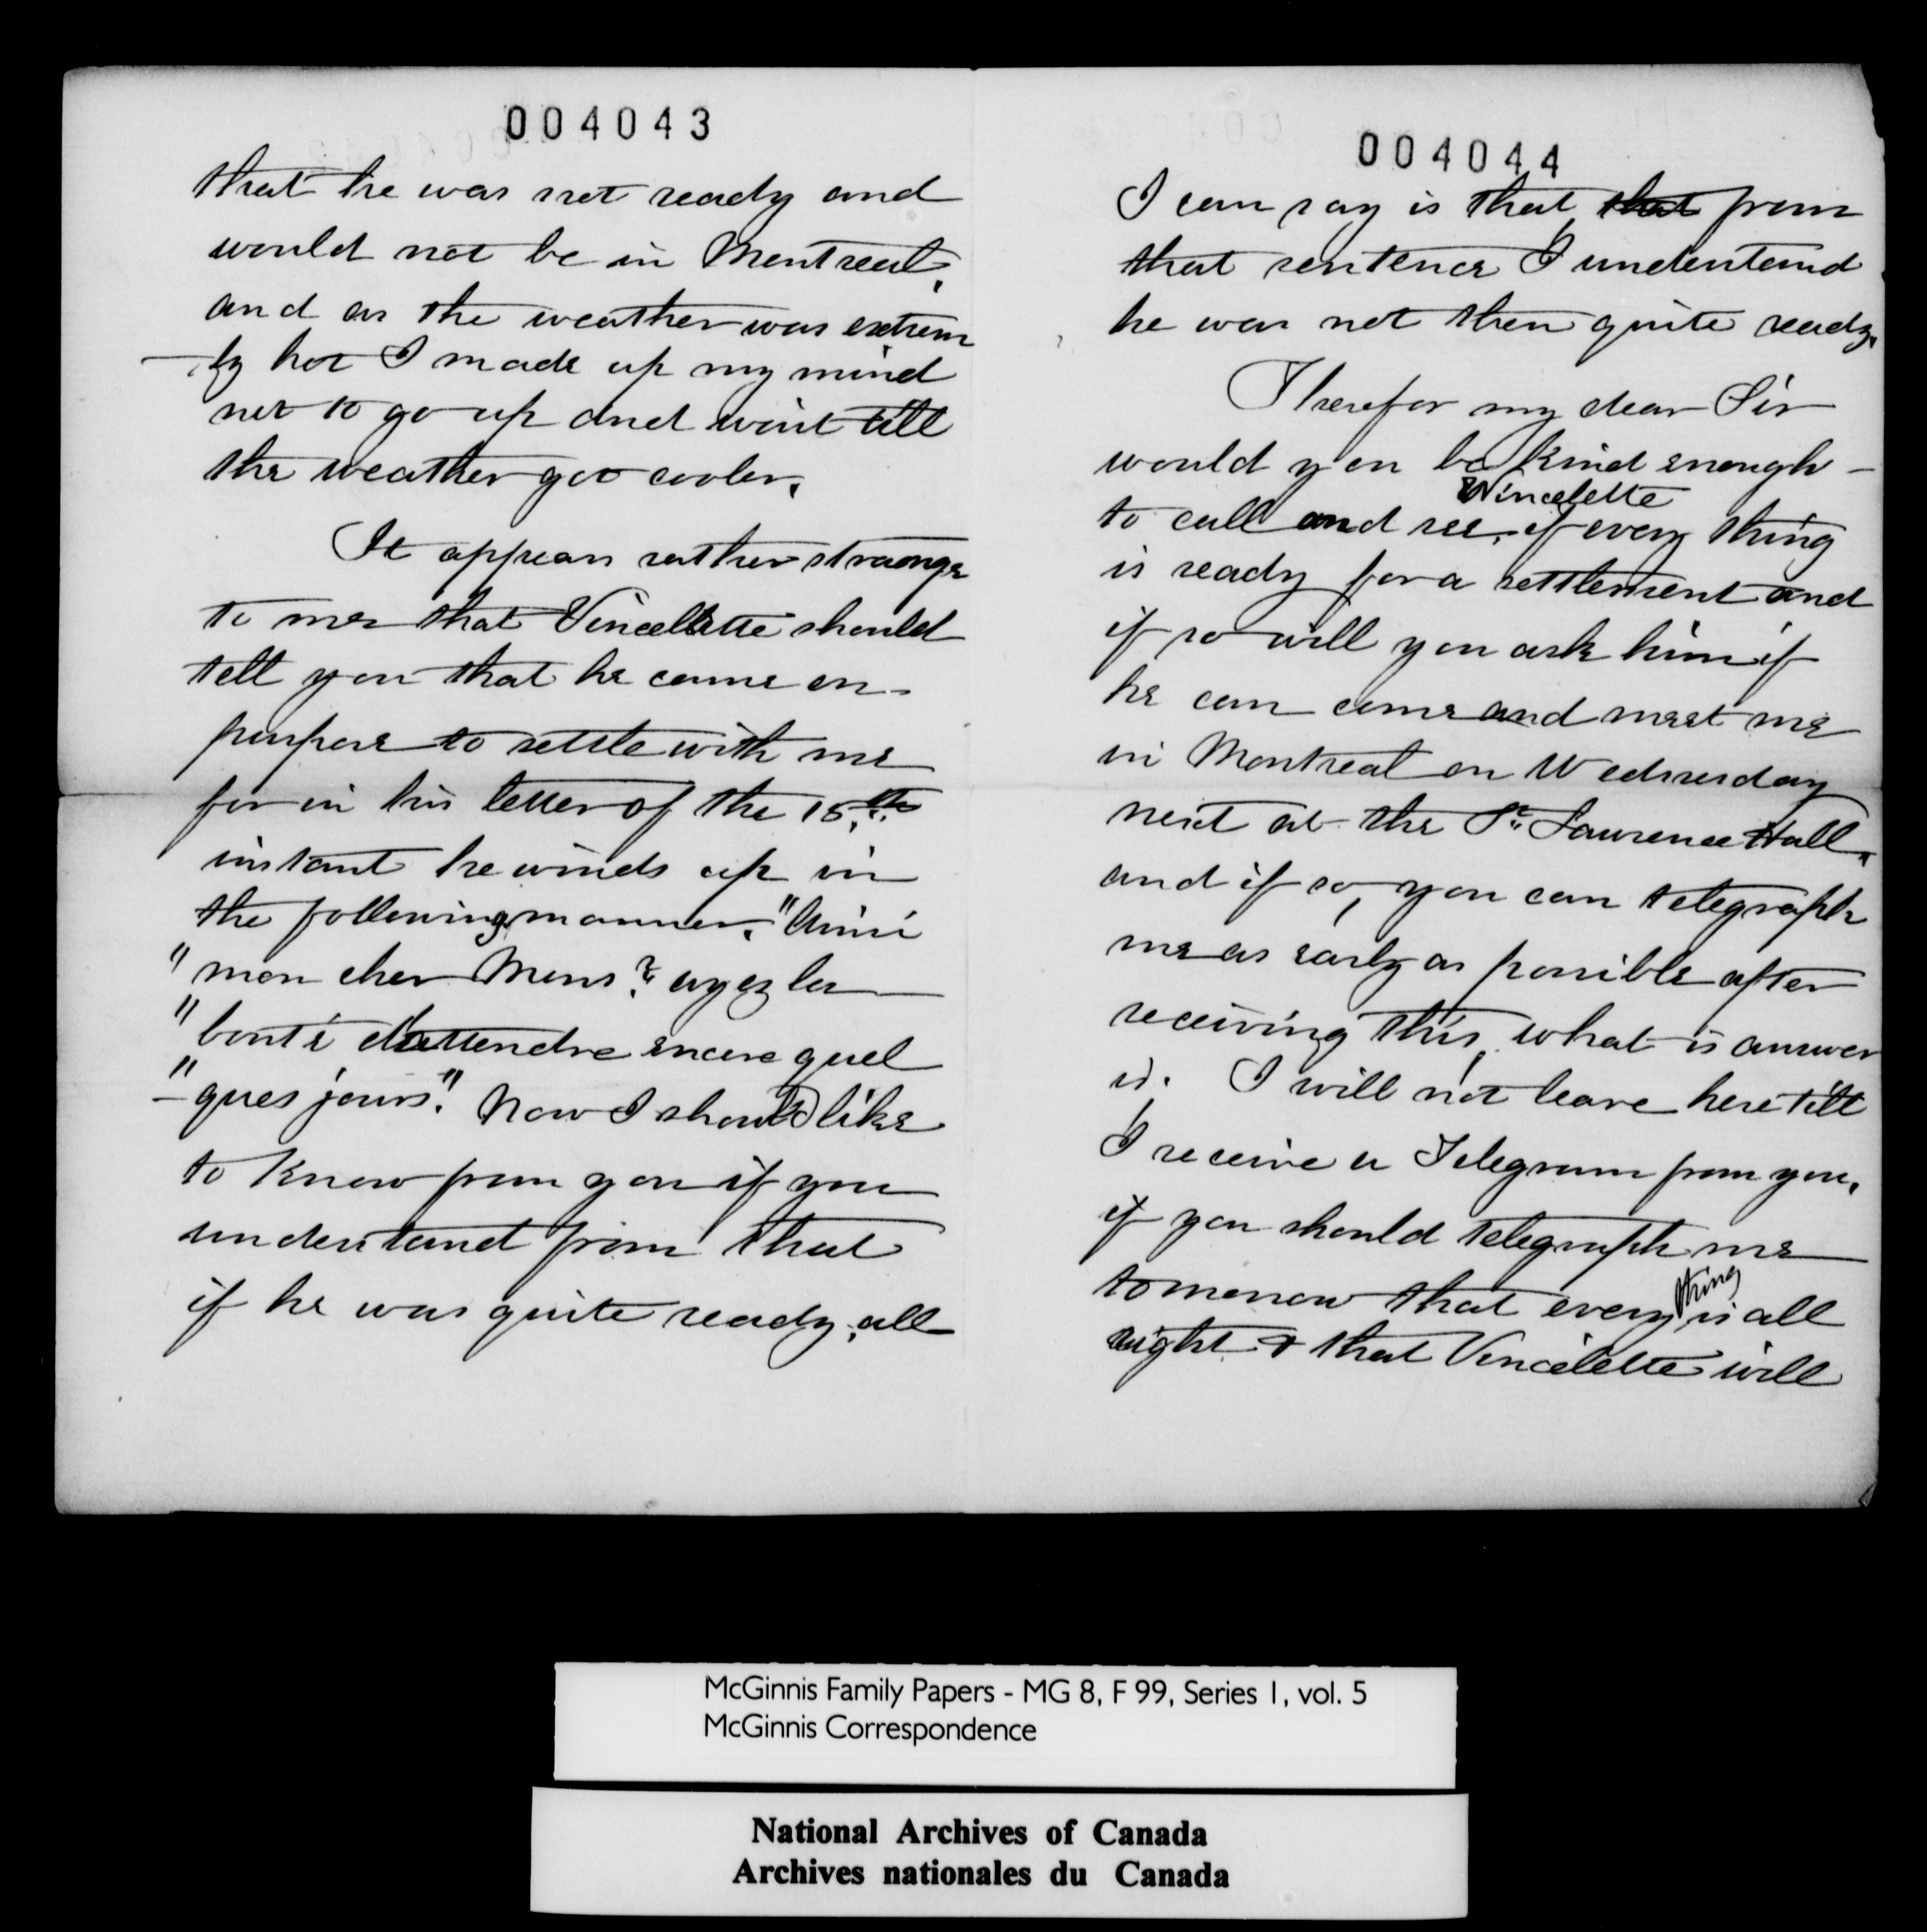 004043
that he was not ready and
would not be in Montreal,
and as the weather was extrem
-ly hot I made up my mind
not to go up and wait till
the weather got cooler.
It appears rather strange
to me that Vincelette should
tell you that he came on
purpose to settle with me
for in his letter of the 15th
instant he winds up in
the following manner. "Ainsi
" mon cher Monsr ayez la
" bonté d'attendre encore quel
" -ques jours". Now I should like
to know from you if you
understand from that
if he was quite ready, all
004044
I can say is that, that from
that sentence I understand
he was not then quite ready.
Therefor my dear Sir
would you be kind enough
to call and see Vincelette if every thing
is ready for a settlement and
if so will you ask him if
he can come and meet me
in Montreal on Wednesday
next at the St. Lawrence Hall,
and if so, you can telegraph
me as early as possible after
receiving this, what is answer
is. I will not leave here till
I receive a Telegram from you,
if you should telegraph me
tomorrow that every thing is all
right & that Vincelette will
McGinnis Family Papers - MG 8, F 99, Series 1, vol. 5
McGinnis Correspondence
National Archives of Canada
Archives nationales du Canada